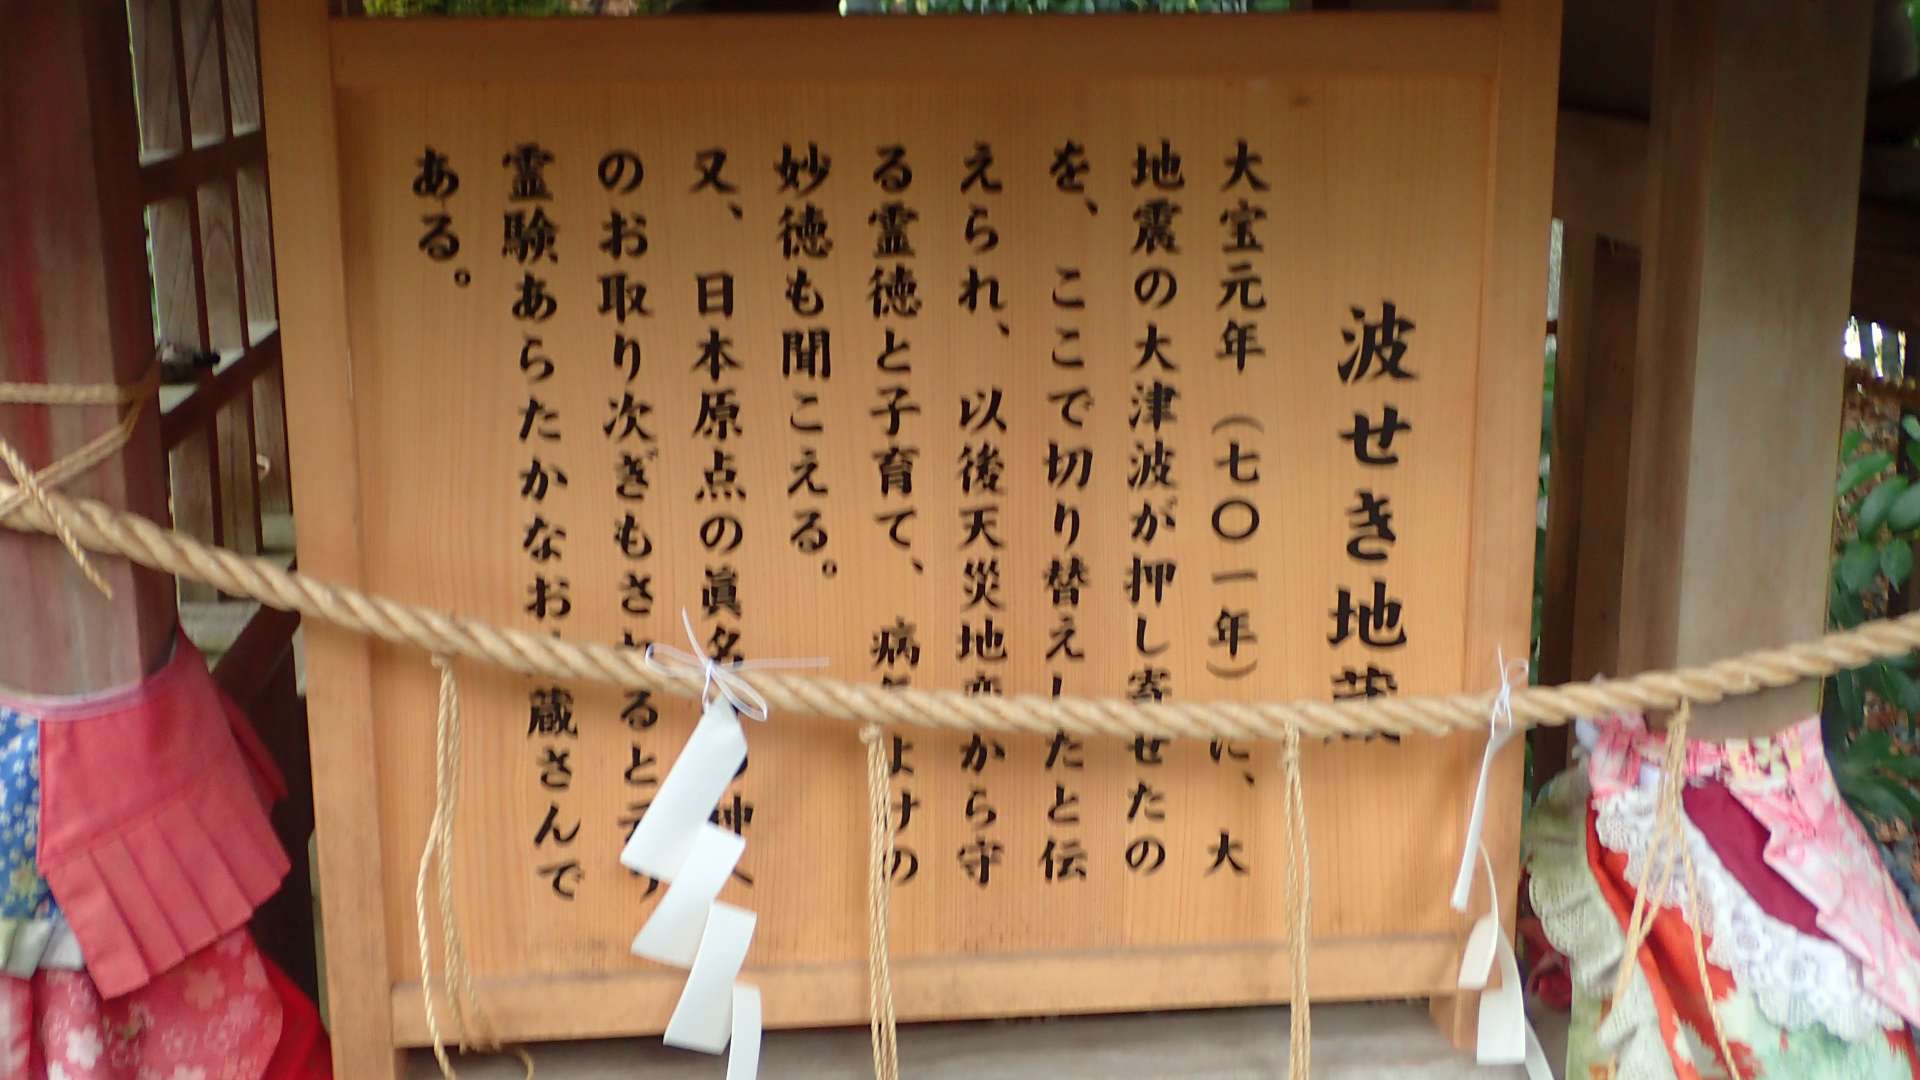 波せき地蔵
大宝元年(七〇一年)に、大
地震の大津波が押し寄せたの
を、ここで切り替えしたと伝
えられ、以後天災地変から守
る霊徳と子育て、病よけの
妙徳も聞こえる。
又、日本原点の眞名の神
のお取り次ぎもさると
霊験あらたかなお蔵さんで
ある。